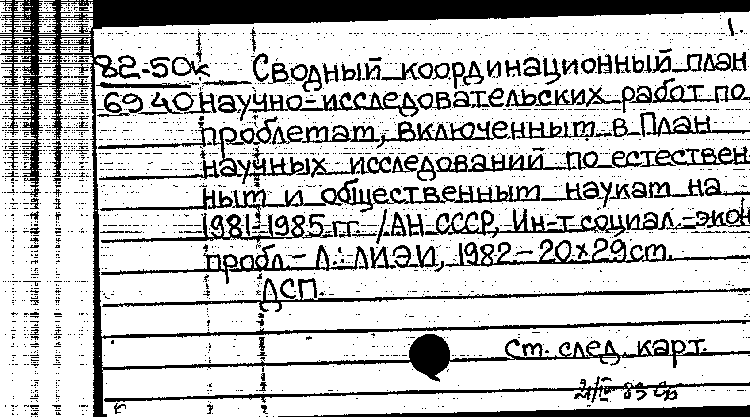 1.
82-50к Сводный координационный план
6940 научно-исследовательских работ по
проблемам, включенным в План
научных исследований по естествен
ным и общественным наукам на
1981-1985 гг. /АН СССР, Ин-т социал.-экон
пробл.- Л.: ЛИЭИ, 1982 - 20х29см.
ДСП.
См. след. карт.